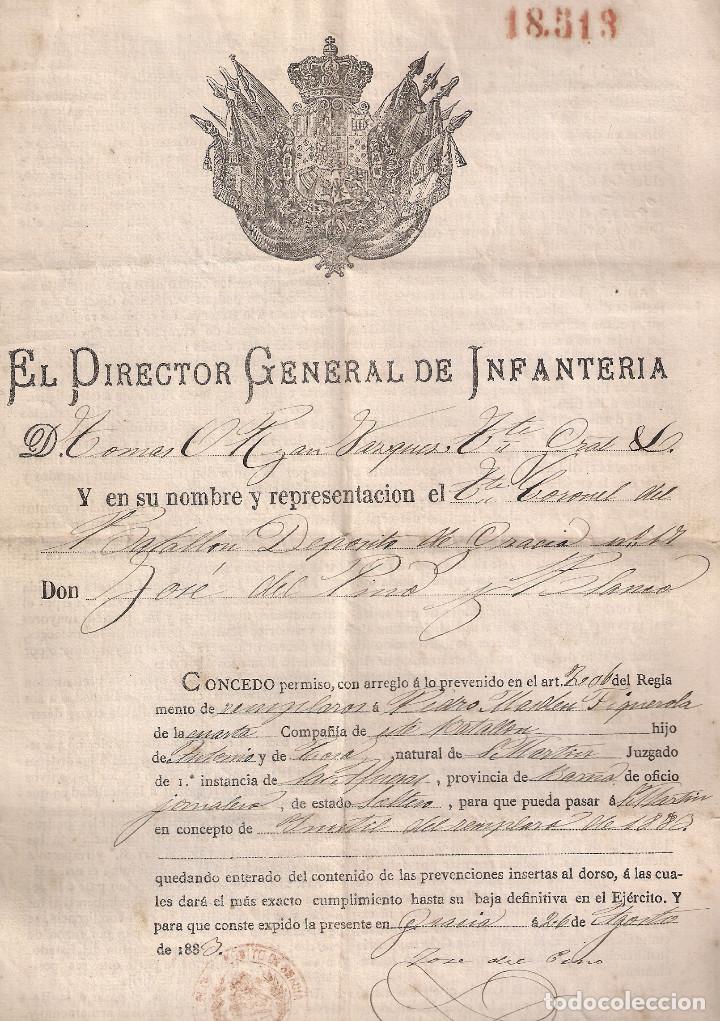 18.513
EL DIRECTOR GENERAL DE INFANTERIA
D. Tomas O Ryan Vazques Tte Gral &.
Y en su nombre y representacion el Tte Coronel del
Batallon Deposito de Gracia nº 17
Don José del Pino y Blanco
CONCEDO permiso, con arreglo á lo prevenido en el art. del Regla
mento de remplazos á Pedro Figuerola
de la cuarta Compañía de este batallon hijo
de Antonio y de Rosa, natural de S. Martin Juzgado
de 1.ª instancia de, provincia de Barna de oficio
jornalero, de estado Soltero, para que pueda pasar á S. Martin
en concepto de Inutil del remplazo de 1883
quedando enterado del contenido de las prevenciones insertas al dorso, á las cua-
les dará el más exacto cumplimiento hasta su baja definitiva en el Ejército. Y
para que conste expido la presente en Gracia á 26 de Agosto
de 1883.
José del Pino
todocoleccion
todocoleccion.net